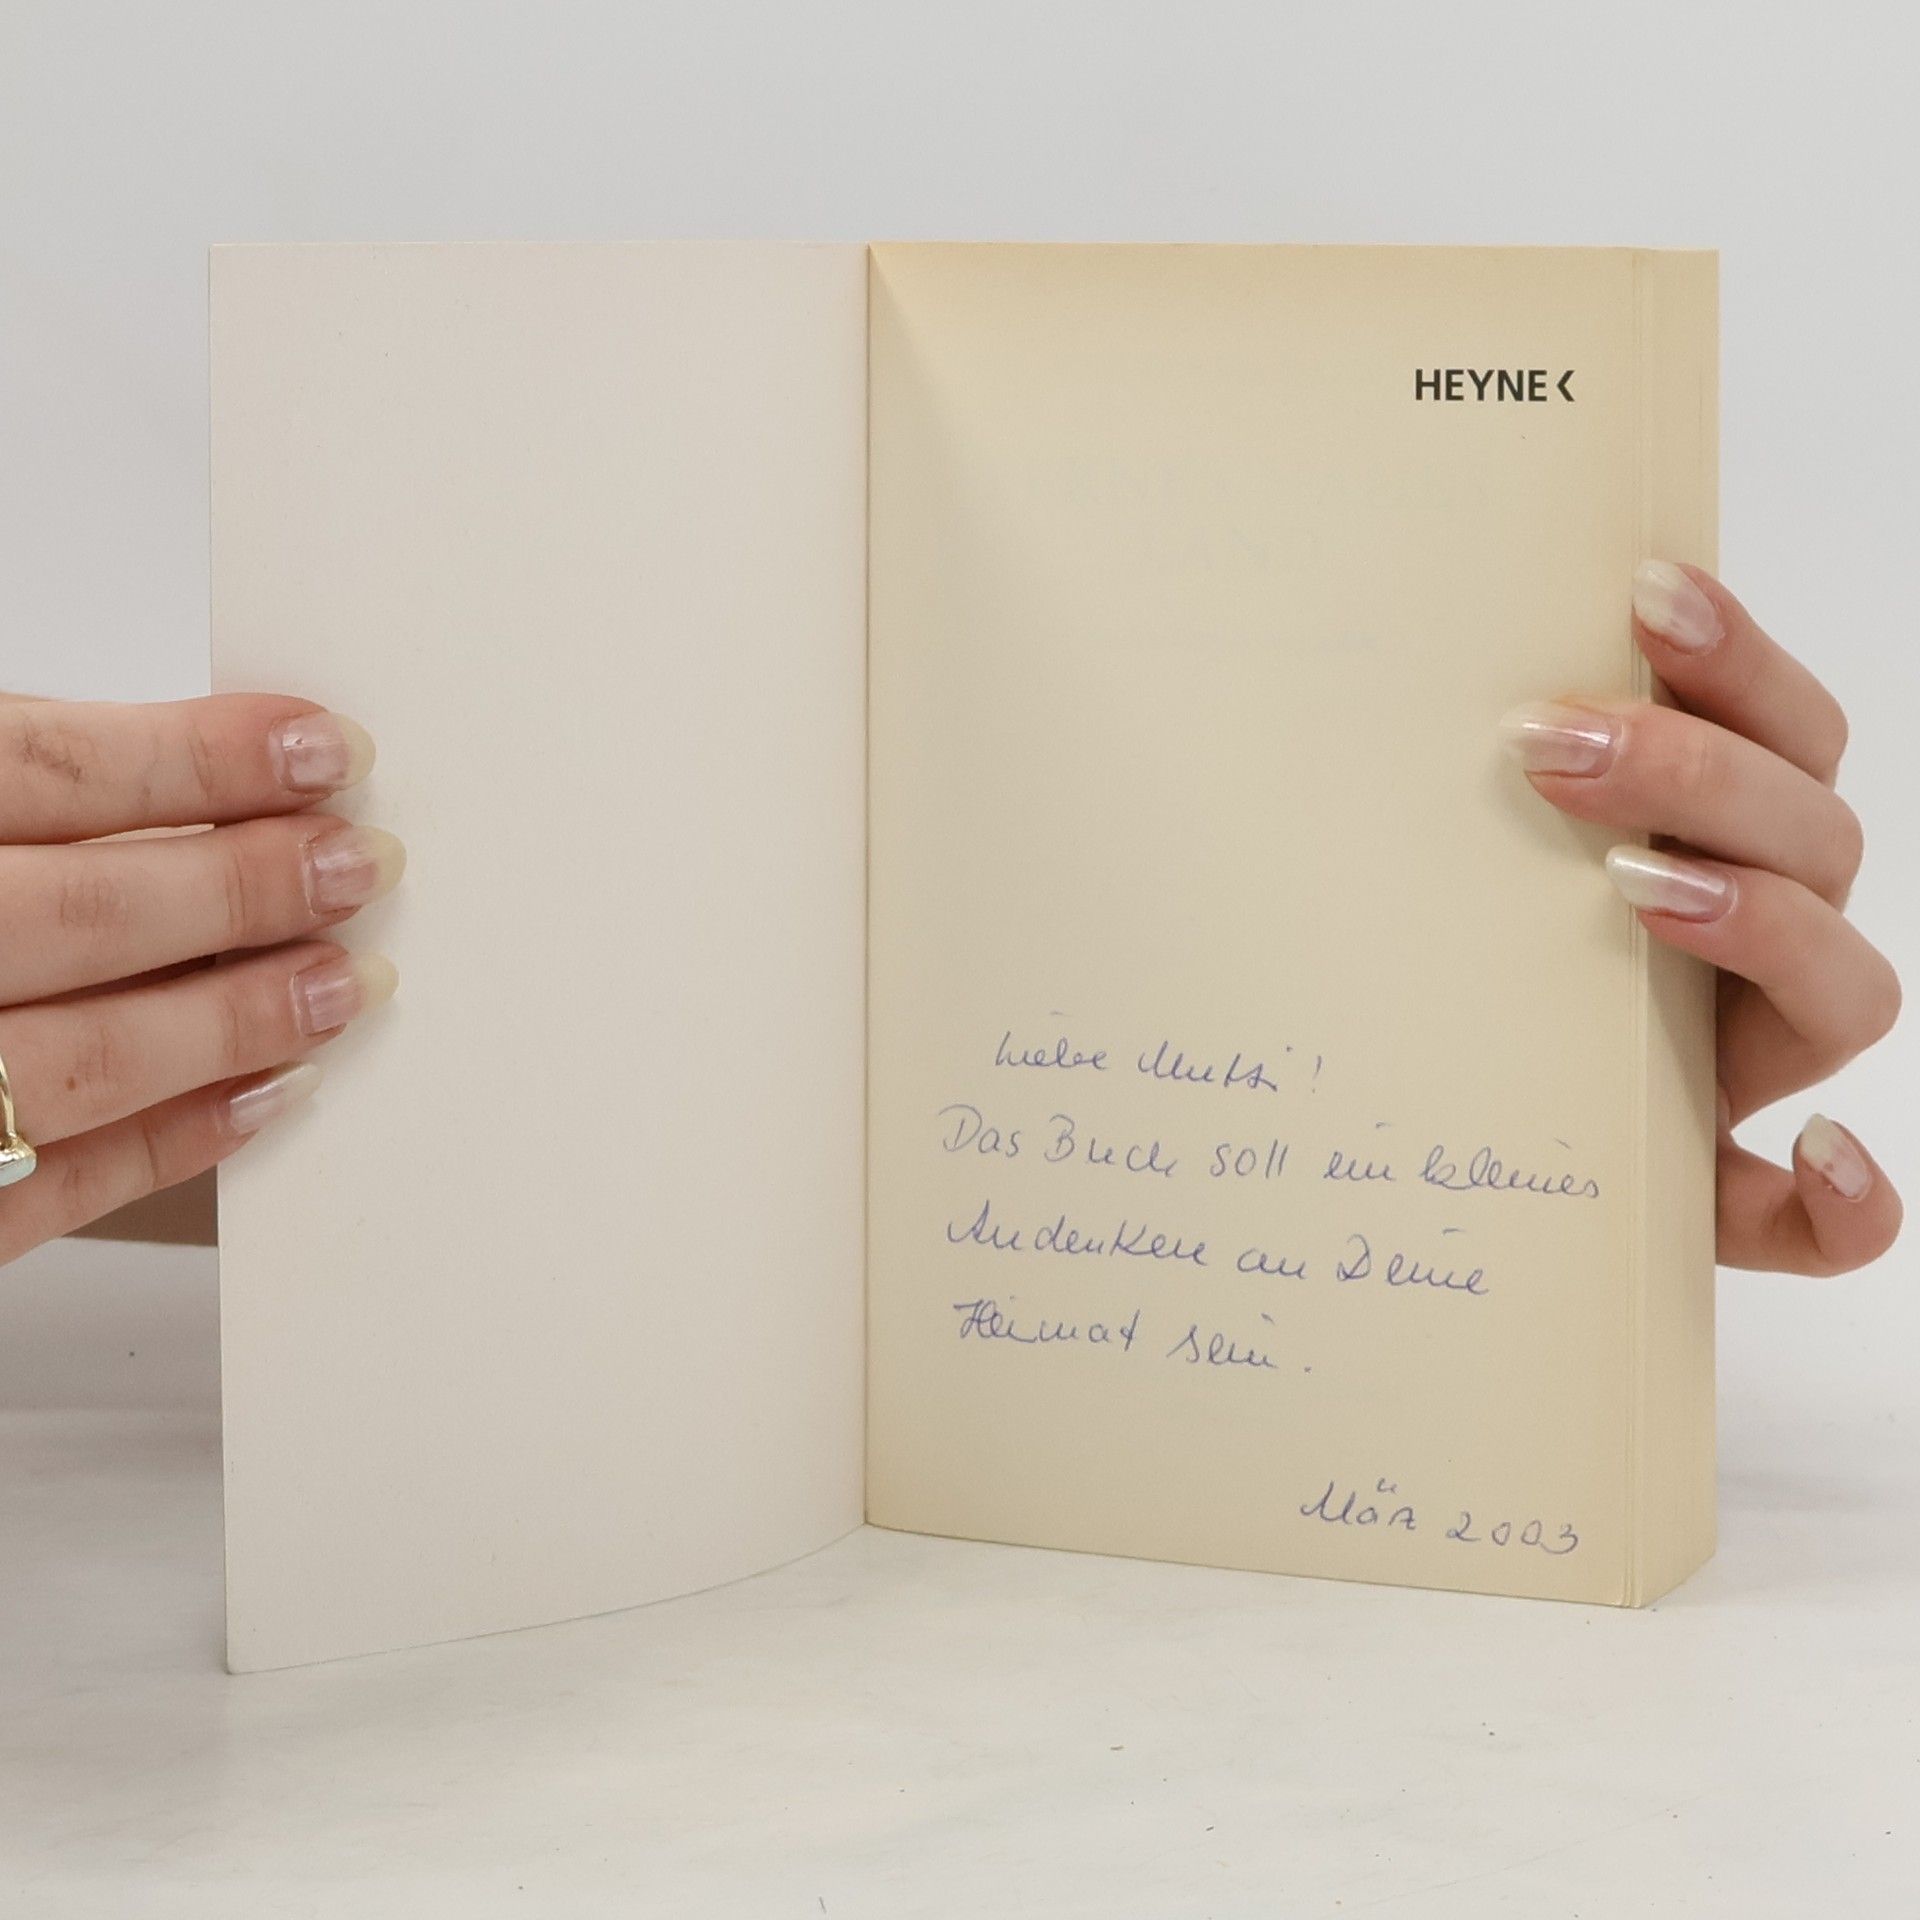 HEYNE<
Liebe Mutsi!
Das Buch soll ein kleines
Andenken an Deine
Heimat sein.
März 2003